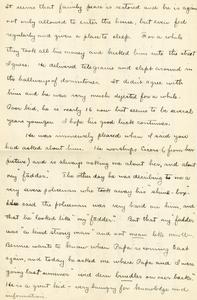 It seems that family peace is restored and he is again
not only allowed to enter the house, but even fed
regularly and given a place to sleep. For a while
they took all his money and kicked him into the street
I guess. He delivered telegrams and slept around in
the hallways of downtown. It didn't agree with
him and he was very much dejected for a while.
Poor kid, he is nearly 16 now but seems to be several
years younger. I hope his good luck continues.
He was immensely pleased when I said you
had asked about him. He worships (from her
picture) and is always asking me about her, and about
my "fadder." The other day he was describing to me a
very severe policeman who took away his "shine-box".
He said the policeman was very hard on him, and
that he "looked like my fadder." But that my fadder
was "a kind strong man" and not mean like
Bennie wants to know when Papa is coming east
again, and today he asked me where Papa and I were
going last summer "wid dem bundles on our backs."
He is a great kid - very hungry for knowledge and
information.